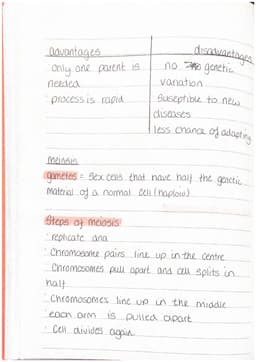 advantages disadvantages
· only one parent is no genetic
needed variation
· process is rapid suseptible to new
diseases
less chance of adapting
meiosis
gametes = sex cells that have half the genetic
material of a normal cell (haploid)
Steps of meiosis
· replicate dna
· Chromosome pairs line up in the centre
· Chromosomes pull apart and cell splits in
half
· Chromosomes line up in the middle
· each arm is pulled apart
· Cell divides again